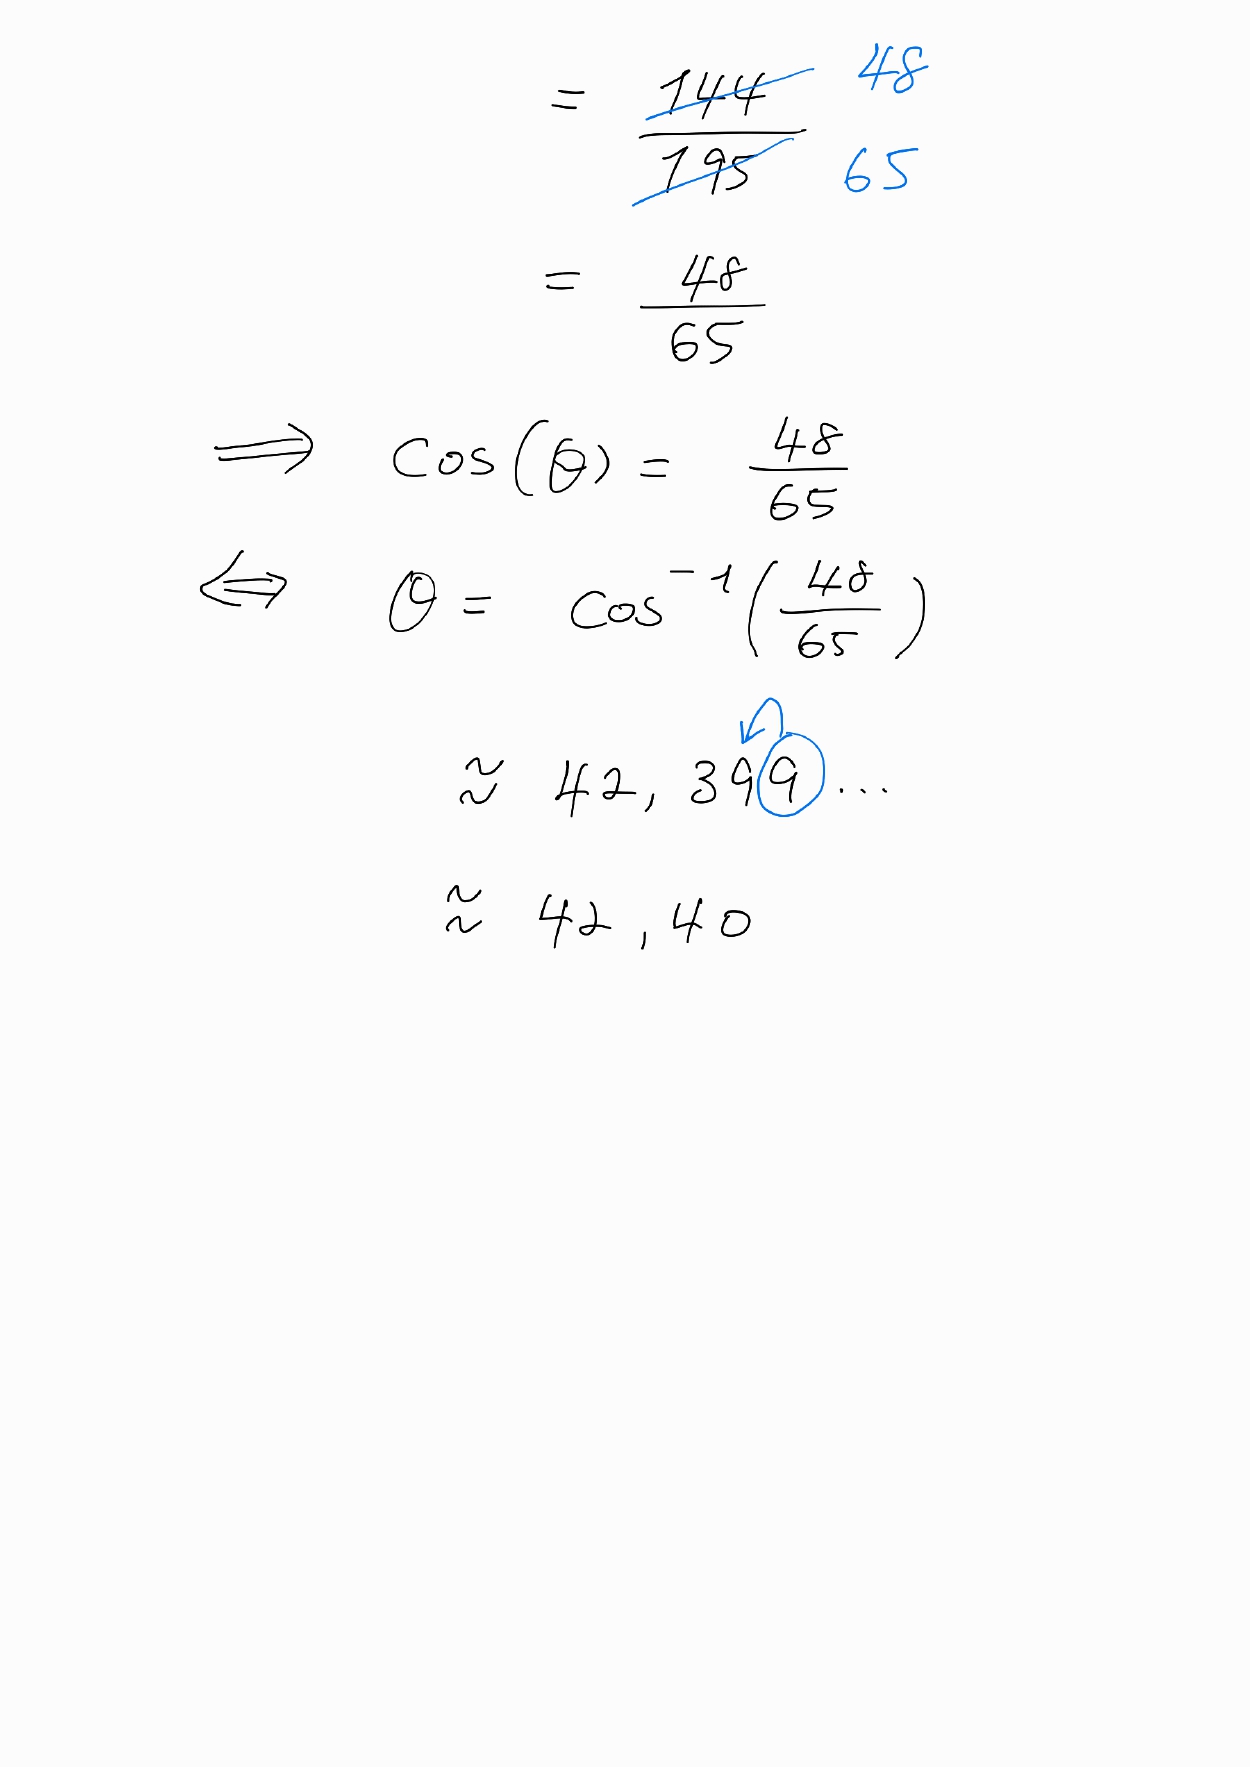 = 144/195 48/65
= 48/65
⇒ cos(θ) = 48/65
⇔ θ = cos⁻¹(48/65)
≈ 42,399...
≈ 42,40